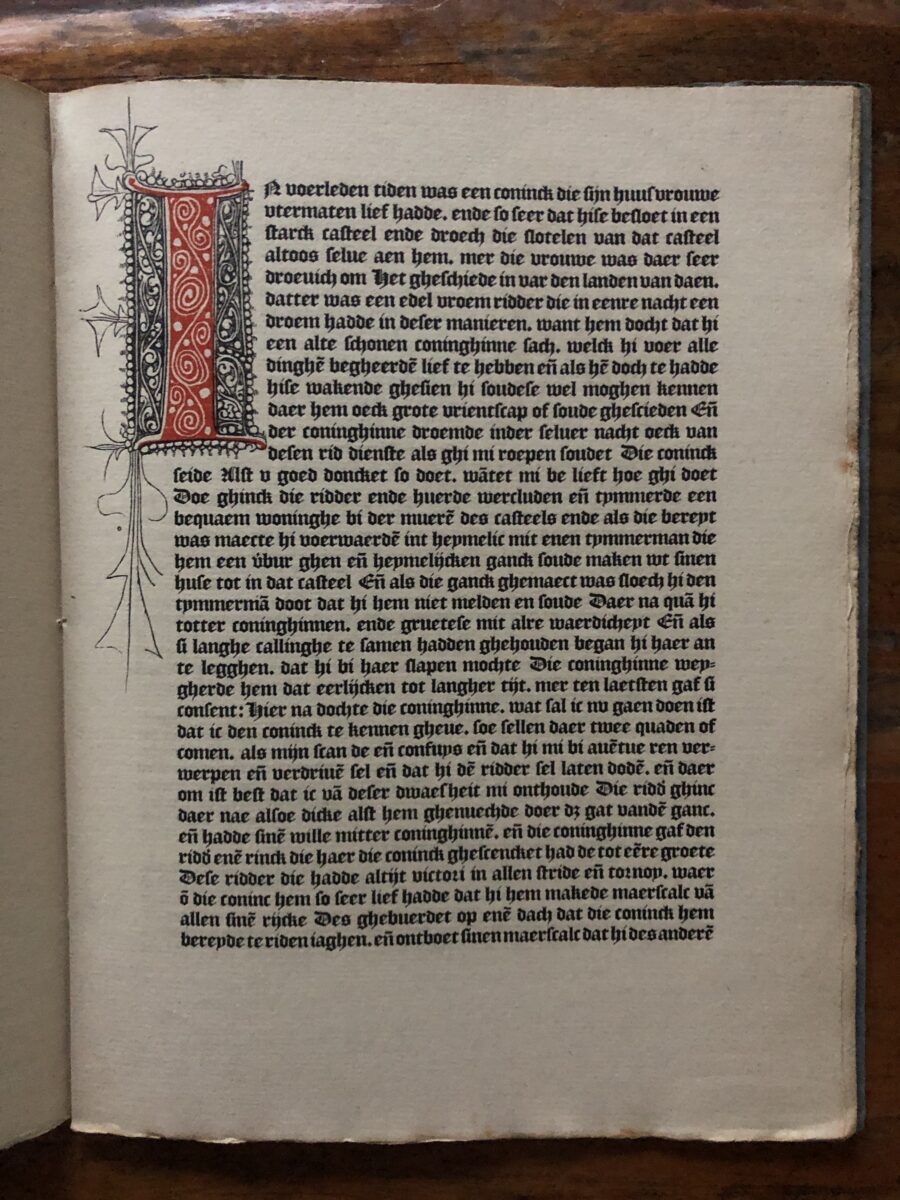 IN voerleden tiden was een coninck die sijn huusvrouwe
vtermaten lief hadde. ende so seer dat hise besloet in een
starck casteel ende droech die slotelen van dat casteel
altoos selue aen hem. mer die vrouwe was daer seer
droeuich om Het gheschiede in var den landen van daen.
datter was een edel vroem ridder die in eenre nacht een
droem hadde in deser manieren. want hem docht dat hi
een alte schonen coninghinne sach. welck hi voer alle
dinghē begheerdē lief te hebben eñ als hē doch te hadde
hise wakende ghesien hi soudese wel moghen kennen
daer hem oeck grote vrientscap of soude ghescieden Eñ
der coninghinne droemde inder seluer nacht oeck van
desen rid dienste als ghi mi roepen soudet Die coninck
seide Alst v goed doncket so doet. wātet mi be lieft hoe ghi doet
Doe ghinck die ridder ende huerde wercluden eñ tymmerde een
bequaem woninghe bi der muerē des casteels ende als die bereyt
was maecte hi voerwaerdē int heymelic mit enen tymmerman die
hem een v̄bur ghen eñ heymelijcken ganck soude maken wt sinen
huse tot in dat casteel Eñ als die ganck ghemaect was sloech hi den
tymmermā doot dat hi hem niet melden en soude Daer na quā hi
totter coninghinnen. ende gruetese mit alre waerdicheyt Eñ als
si langhe callinghe te samen hadden ghehouden began hi haer an
te legghen. dat hi bi haer slapen mochte Die coninghinne wey=
gherde hem dat eerlijcken tot langher tijt. mer ten laetsten gaf si
consent: Hier na dochte die coninghinne. wat sal ic nv gaen doen ist
dat ic den coninck te kennen gheue. soe sellen daer twee quaden of
comen. als mijn scan de eñ confuys eñ dat hi mi bi auētue ren ver=
werpen eñ verdriuē sel eñ dat hi dē ridder sel laten dodē. eñ daer
om ist best dat ic vā deser dwaesheit mi onthoude Die ridd̄ ghinc
daer nae alsoe dicke alst hem ghenuechde doer dz gat vandē ganc.
eñ hadde sinē wille mitter coninghinnē. eñ die coninghinne gaf den
ridd̄ enē rinck die haer die coninck ghescencket had de tot eēre groete
Dese ridder die hadde altijt victori in allen stride eñ tornoy. waer
ō die coninc hem so seer lief hadde dat hi hem makede maerscalc vā
allen sinē rijcke Des ghebuerdet op enē dach dat die coninck hem
bereyde te riden iaghen. eñ ontboet sinen maerscalc dat hi des anderē